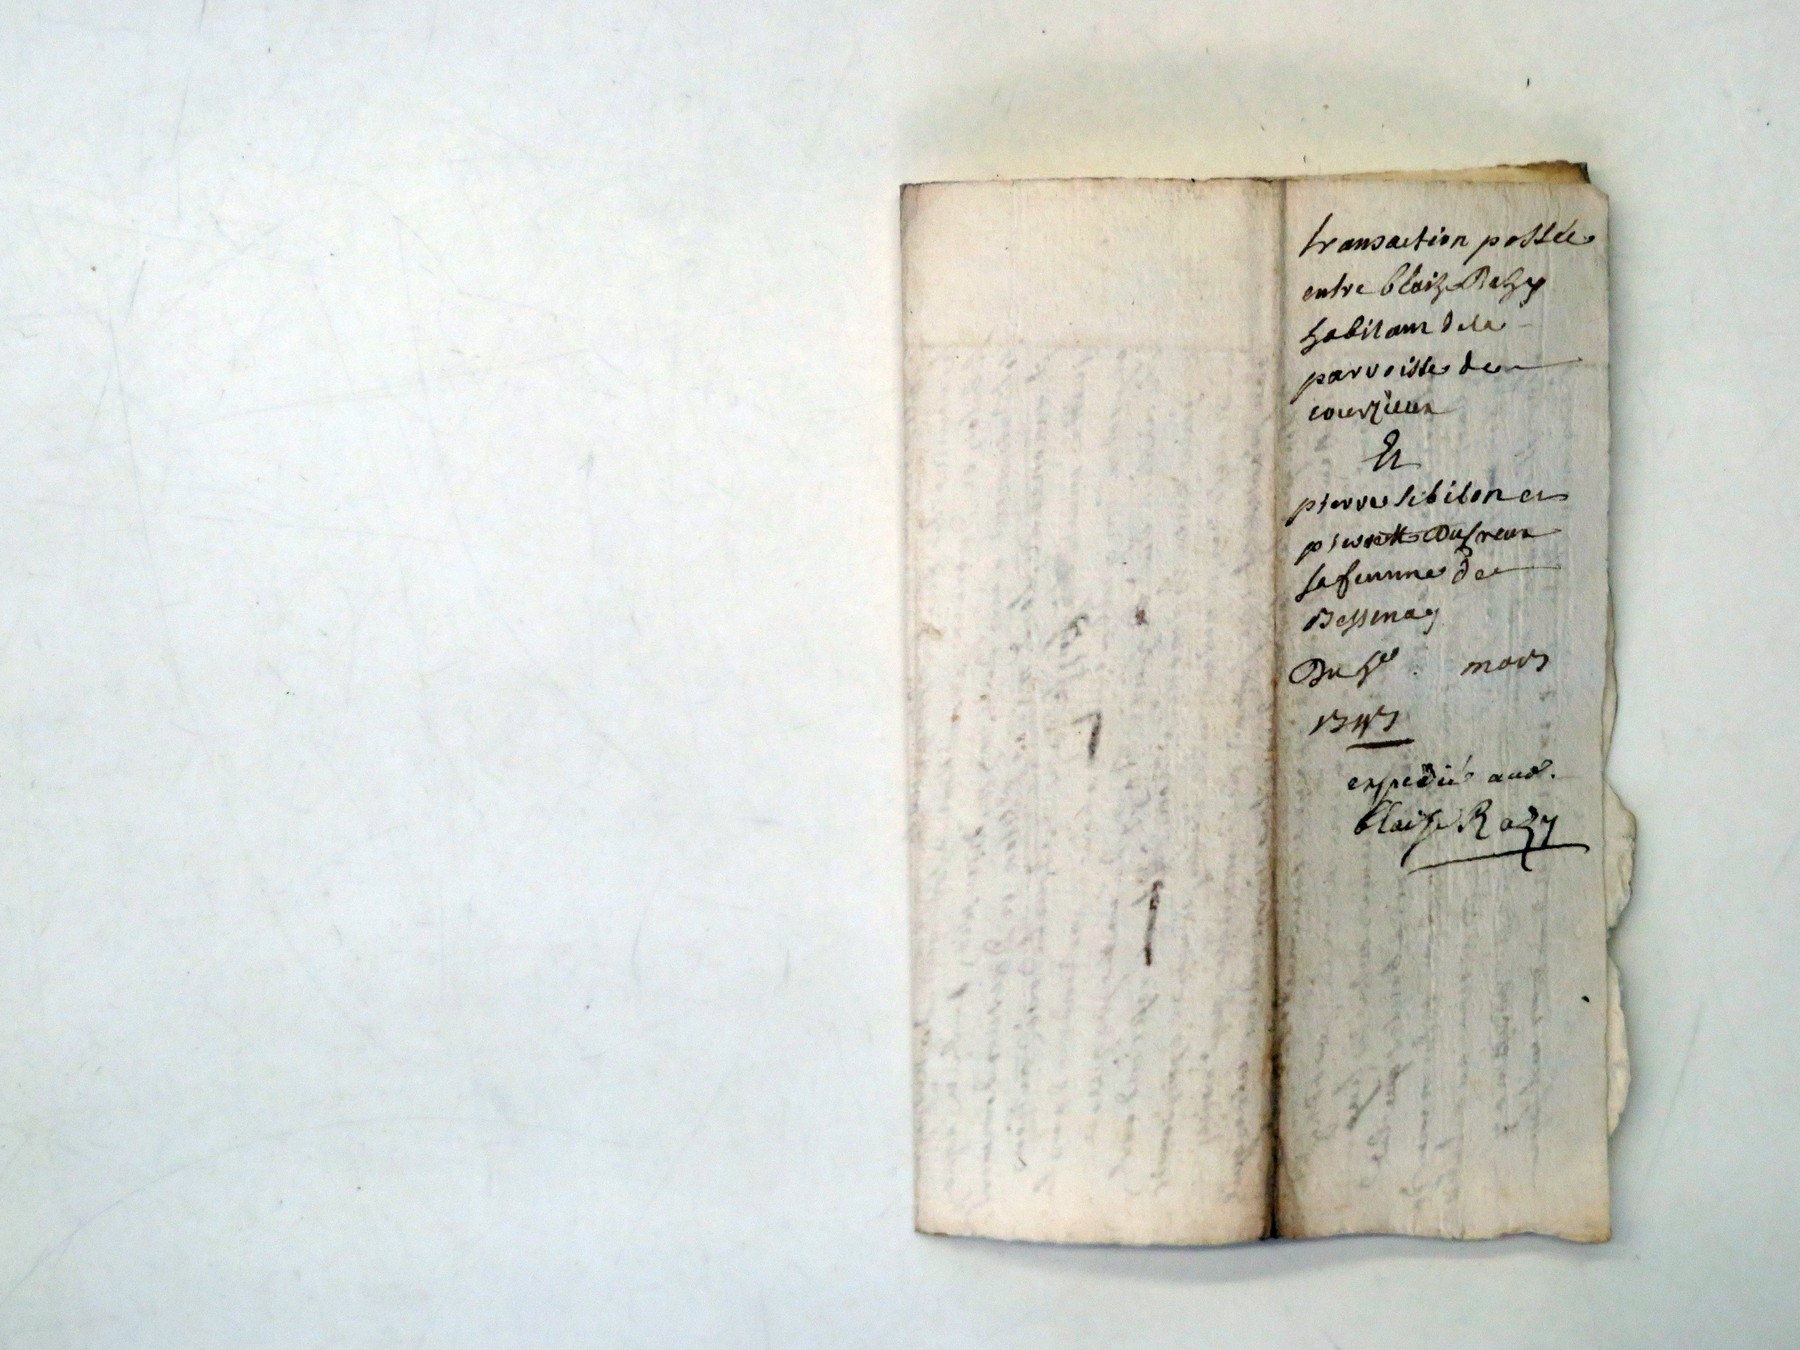 transaction passée
entre blaize Razy
habitant de la
parroisse de
courzieux
Et
pierre sibilon et
pierrette Dufreux
sa femme de
Bessenay
Du mars
expedié aud.
blaize Razy